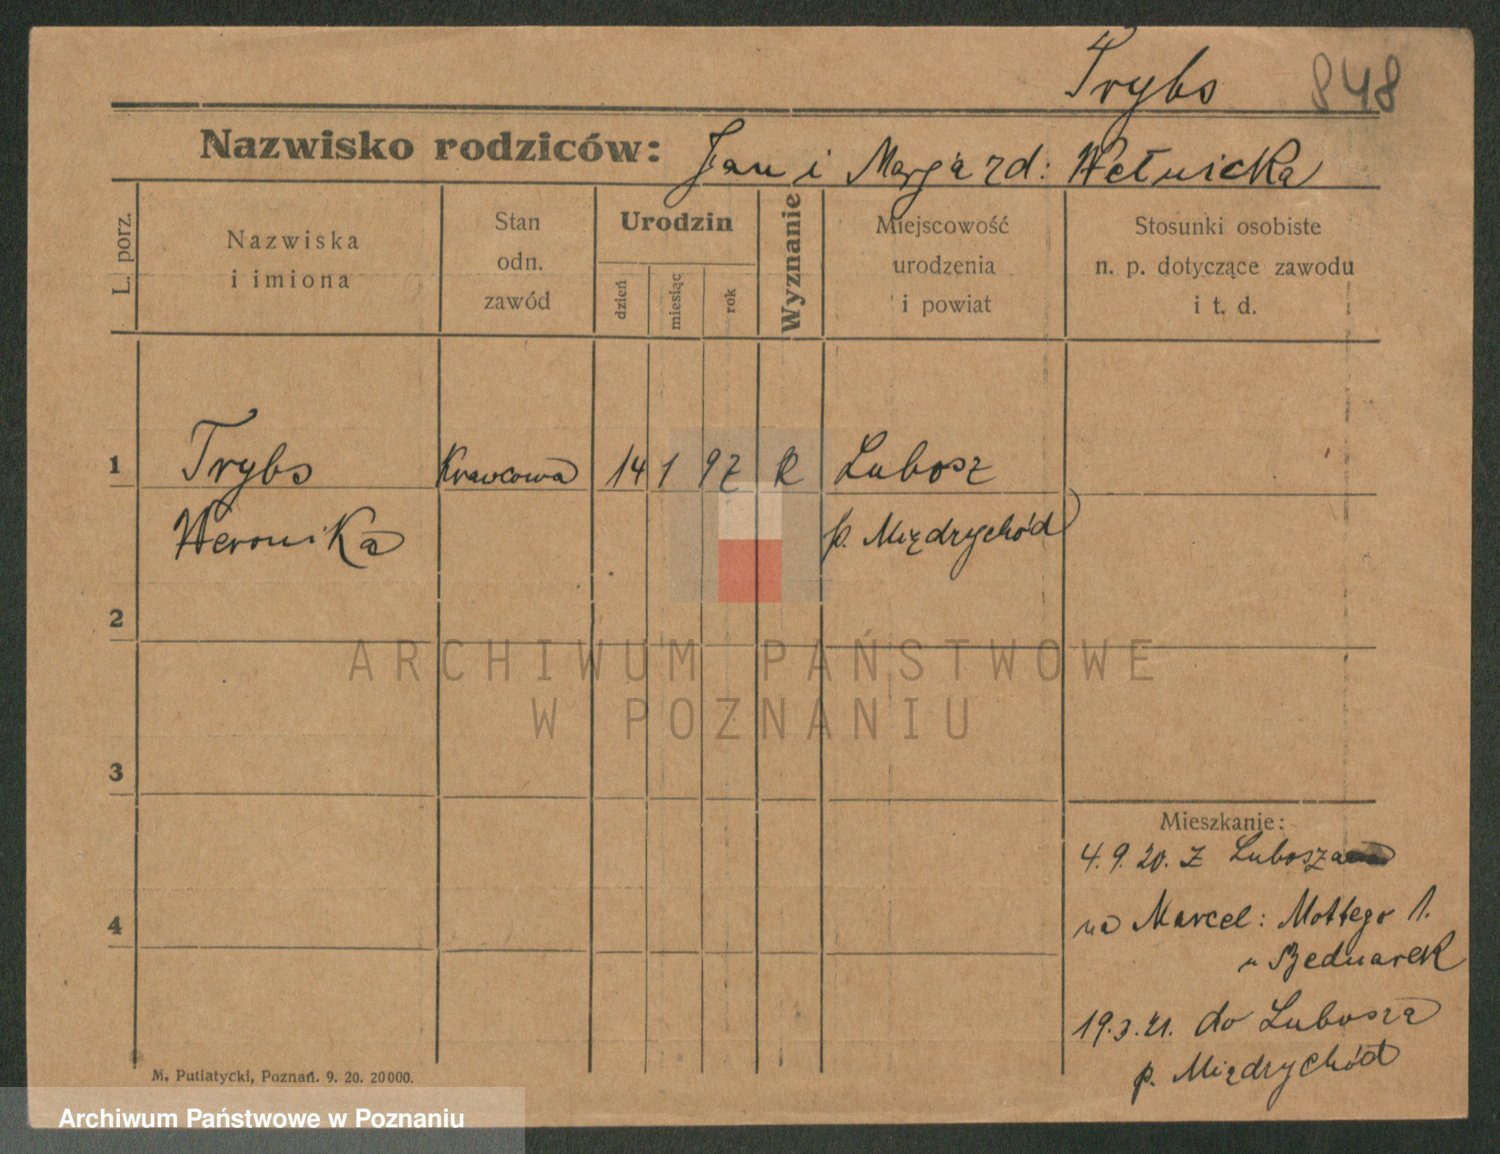 Trybs 848
Nazwisko rodziców: Jan i Marja zd: Wełnicka
L. porz.
Nazwiska
i imiona
Stan
odn.
zawód
Urodzin
dzień
miesiąc
rok
Wyznanie
Miejscowość
urodzenia
i powiat
Stosunki osobiste
n. p. dotyczące zawodu
i t. d.
1 Trybs Krawcowa 14 1 97 R Lubosz
Weronika p. Międzychód
2
3
4
ARCHIWUM PAŃSTWOWE
W POZNANIU
Mieszkanie:
4.9.20. z Lubosza
na Marcel: Mottego 1.
u Bednarek
19.3.21. do Lubosza
p. Międzychód
M. Putiatycki, Poznań. 9. 20. 20000.
Archiwum Państwowe w Poznaniu